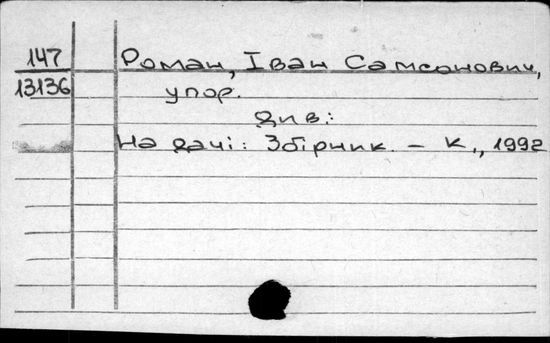 147 Роман, Іван Самсонович,
13136 упор.
див.:
На дачі: Збірник. – К., 1992